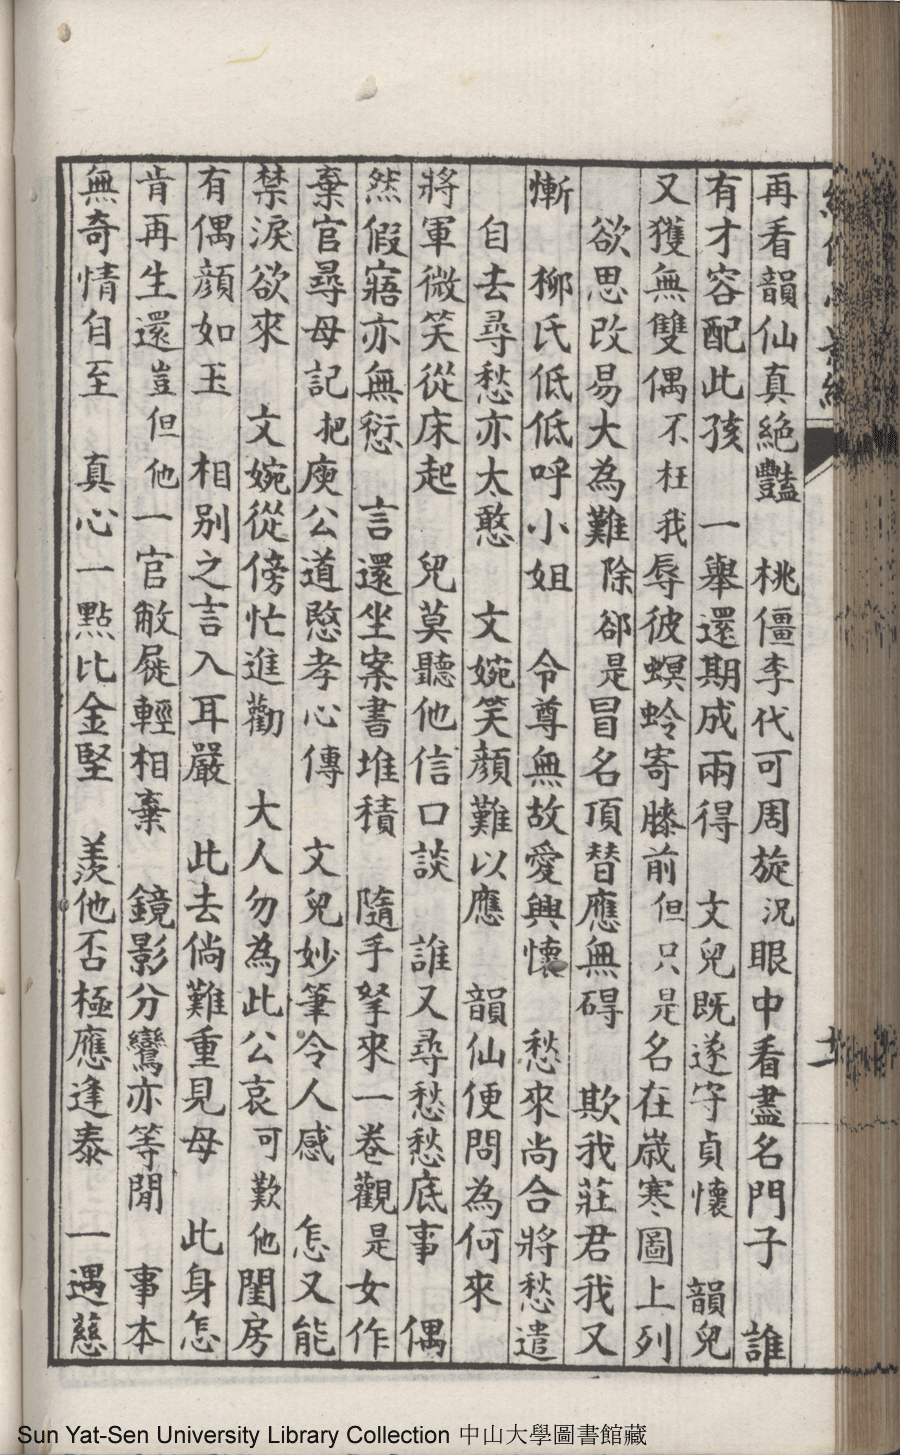 再看韻仙真絶豔　桃僵李代可周旋況眼中看盡名門子　誰
有才容配此孩　一舉還期成兩得　文兒既遂守貞懷　韻兒
又獲無雙偶不枉我辱彼螟蛉寄膝前但只是名在歲寒圖上列
欲思改易大為難除郤是冒名頂替應無碍　欺我莊君我又
慚　柳氏低低呼小姐　令尊無故愛興懷　愁來尚合將愁遣
自去尋愁亦太憨　文婉笑顏難以應　韻仙便問為何來
將軍微笑從床起　兒莫聽他信口談　誰又尋愁愁底事　偶
然假寤亦無愆　言還坐案書堆積　隨手拏來一卷觀是女作
棄官尋母記把庾公道愍孝心傳　文兒妙筆令人感　怎又能
禁淚欲來　文婉從傍忙進勸　大人勿為此公哀可歎他閨房
有偶顏如玉　相别之言入耳嚴　此去倘難重見母　此身怎
肯再生還豈但他一官敝屣輕相棄　鏡影分鸞亦等閒　事本
無奇情自至　真心一點比金堅　羨他否極應逢泰　一遇慈
Sun Yat-Sen University Library Collection 中山大學圖書館藏